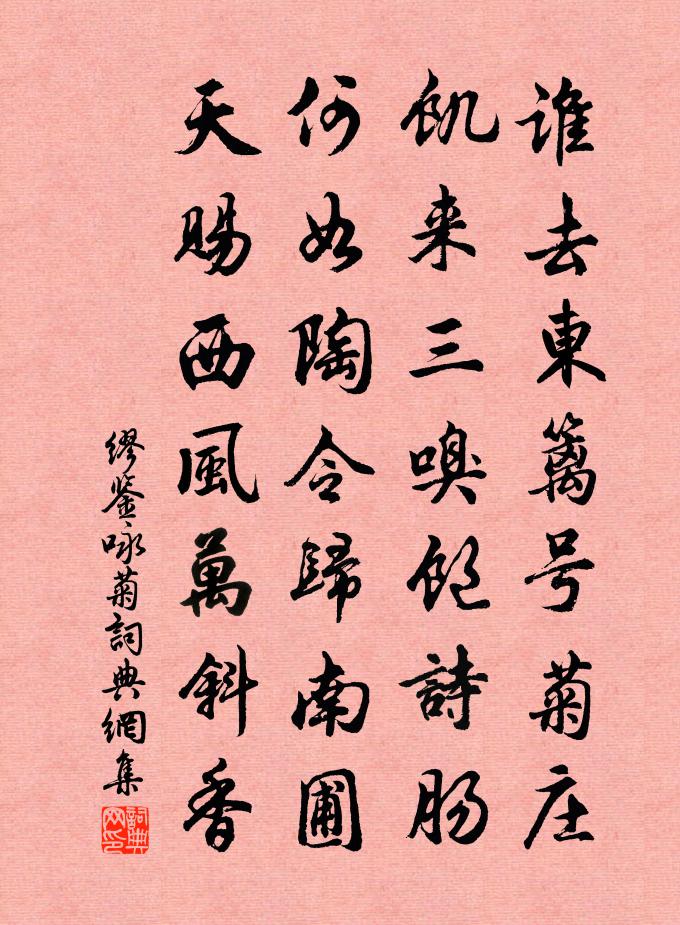 谁去東籬号菊庄
飢来三嗅飽詩肠
何如陶令歸南圃
天賜西風萬斜香
缪鉴咏菊詞典網集
詞典网印